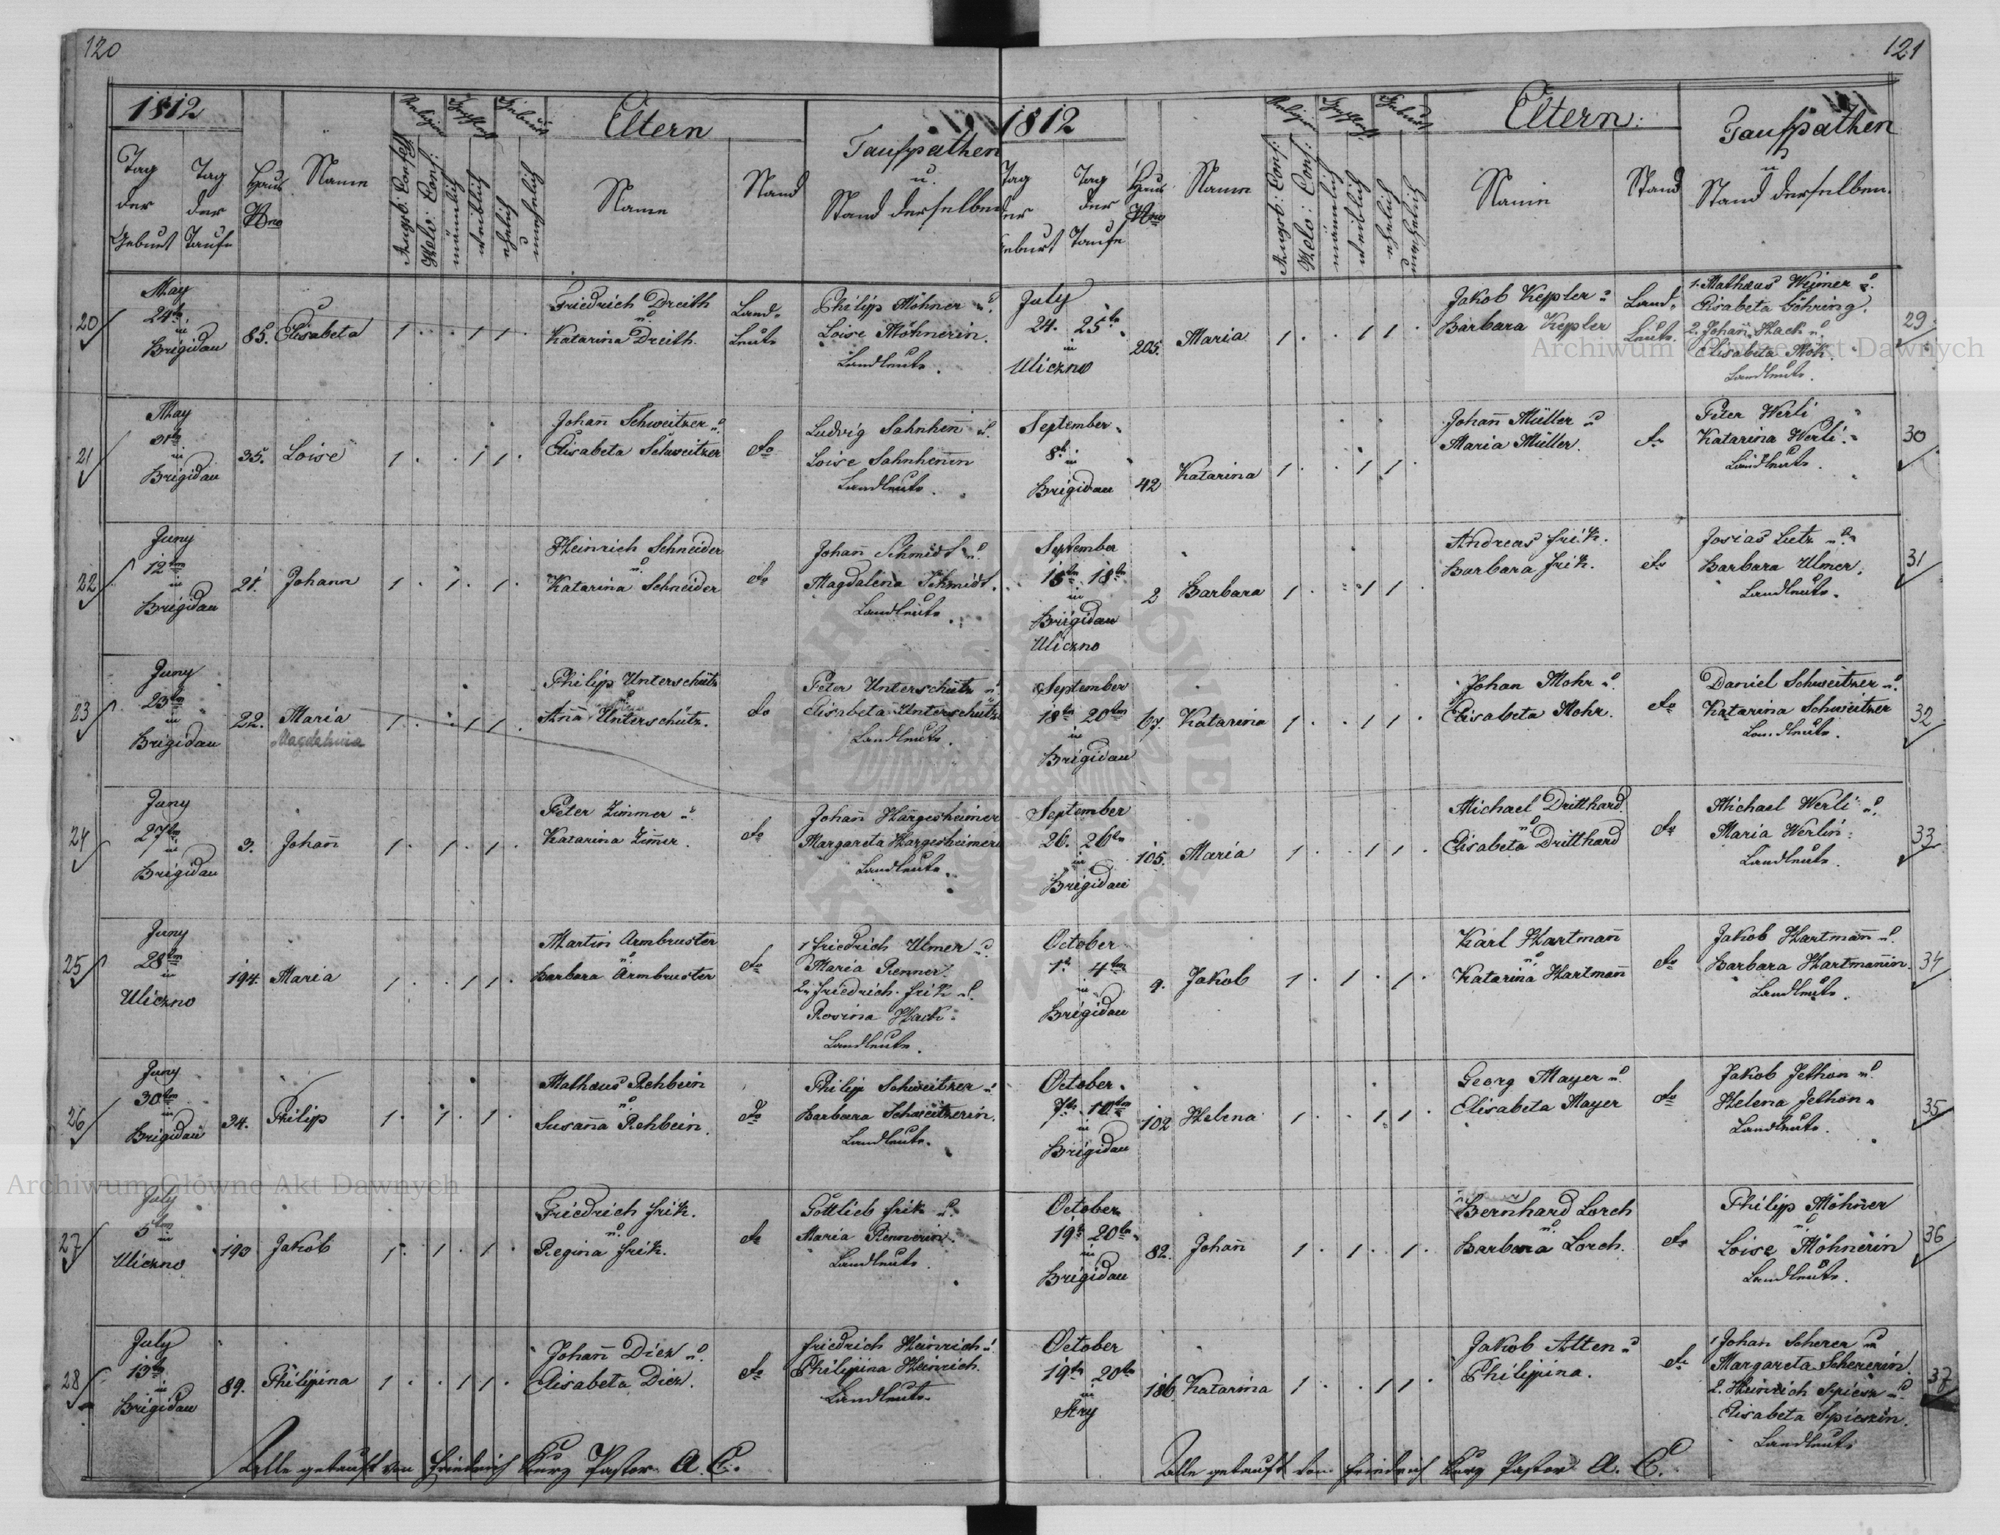 120
1812
Tag
der
Geburt
Tag
der
Taufe
Haus
Nro
Name
Religion
Augsb: Conf:
Helv: Conf:
Geschlecht
männlich
weiblich
Geburt
ehelich
unehelich
Eltern
Name
Stand
Taufpathen
u.
Stand derselben
20
May
24tn
in
Brigidau
85.
Elisabeta
1 . . 1 1 .
Friedrich Dreith
u.
Katarina Dreith.
Land-
leute
Philip Möhner u.
Loise Möhnerin.
Landleute.
21
May
31tn
in
Brigidau
35.
Loise
1 . . 1 1 .
Johañ Schweitzer u.
Elisabeta Schweitzer
do
Ludvig Sahnheñ u.
Loise Sahnheñin
Landleute.
22
Juny
12tn
in
Brigidau
21.
Johann
1 . 1 . 1 .
Heinrich Schneider
u.
Katarina Schneider
do
Johañ Schmidt u.
Magdalena Schmidt.
Landleute.
23
Juny
23tn
in
Brigidau
22.
Maria
Magdalena
1 . . 1 1 .
Philip Unterschütz
Aña Unterschütz.
do
Peter Unterschütz u.
Elisabeta Unterschütz
Landleute.
24
Juny
27tn
in
Brigidau
3.
Johañ
1 . 1 . 1 .
Peter Zimmer u.
Katarina Zimer.
do
Johañ Hargesheimer
Margareta Hargesheimer
Landleute.
25
Juny
28tn
in
Uliczno
194.
Maria
1 . . 1 1 .
Martin Armbruster
u.
Barbara Armbruster
do
1 Friedrich Ulmer u.
Maria Renner.
2. Friedrich Frik u.
Rosina Hack.
Landleute.
26
Juny
30tn
in
Brigidau
34.
Philip
1 . 1 . 1 .
Mathaus Rehbein
u.
Susaña Rehbein.
do
Philipp Schweitzer u.
Barbara Schweitzerin.
Landleute.
27
July
5tn
in
Uliczno
190
Jakob
1 . 1 . 1 .
Friedrich Frik.
u.
Regina Frik.
do
Gottlieb Frik u.
Maria Rennerin.
Landleute.
28
July
13tn
in
Brigidau
89.
Philipina
1 . . 1 1 .
Johañ Diez u.
Elisabeta Diez.
do
Friedrich Heinrich u.
Philipina Heinrich
Landleute.
Alle getauft von Friedrich Kurz Pastor A. C.
121
1812
Tag
der
Geburt
Tag
der
Taufe
Haus
Nro
Name
Religion
Augsb: Conf:
Helv: Conf:
Geschlecht
männlich
weiblich
Geburt
ehelich
unehelich
Eltern:
Name
Stand
Taufpathen
u
Stand derselben.
July
24. 25tn
in
Uliczno
205.
Maria
1 . . 1 1 .
Jakob Kepler u
Barbara Kepler
Land-
leute.
1. Mathaus Weimer u.
Elisabeta Göhring.
2. Johañ Hack u
Elisabeta Mök.
Landleute.
29
September
8tn
in
Brigidau
42
Katarina
1 . . 1 1
Johañ Müller u
Maria Müller.
do
Peter Werli
Katarina Werli.
Landleute.
30
September
15tn 18tn
in
Brigidau
Uliczno
2
Barbara
1 . . 1 1 .
Andreas Frik.
Barbara Frik.
do
Josias Lutz u.
Barbara Ulmer.
Landleute.
31
September
18tn 20tn
in
Brigidau
67.
Katarina
1 . . 1 1 .
Johan Mohr u.
Elisabeta Mohr.
do
Daniel Schweitzer u.
Katarina Schweitzer
Landleute.
32
September
26. 26tn
in
Brigidau
105.
Maria
1 . . 1 1 .
Michael Dritthard
u
Elisabeta Dritthard
do
Michael Werli u.
Maria Werlin.
Landleute.
33
October
1t 4tn
in
Brigidau
9.
Jakob
1 . 1 . 1 .
Karl Hartmañ
u.
Katarina Hartmañ
do
Jakob Hartmañ u.
Barbara Hartmañin.
Landleute.
34
October
7tn 10tn
in
Brigidau
102
Helena
1 . . 1 1 .
Georg Mayer u.
Elisabeta Mayer
do
Jakob Jethon u.
Helena Jethon.
Landleute.
35
October
19t 20tn
in
Brigidau
82.
Johañ
1 . 1 . 1 .
Bernhard Lorch
u.
Barbara Lorch.
do
Philipp Möhner
u
Loise Möhnerin
Landleute.
36
October
19tn 20tn
in
Stry
186
Katarina
1 . . 1 1 .
Jakob Alten u
Philippina.
do
1 Johan Scherer u
Margareta Schererin.
2. Heinrich Spiesz u.
Elisabeta Spieszin.
Landleute
37
Alle getauft von Friedrich Kurz Pastor A. C.
Archiwum Główne Akt Dawnych
Archiwum Główne Akt Dawnych